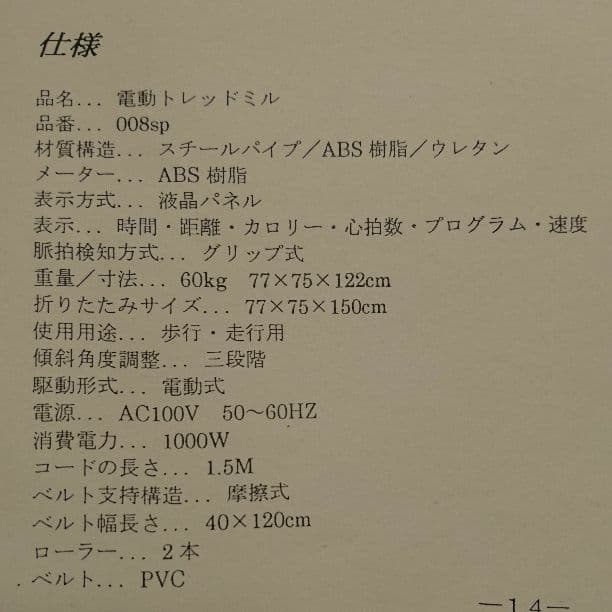 仕様
品名... 電動トレッドミル
品番... 008sp
材質構造... スチールパイプ／ABS 樹脂／ウレタン
メーター... ABS 樹脂
表示方式... 液晶パネル
表示... 時間・距離・カロリー・心拍数・プログラム・速度
脈拍検知方式... グリップ式
重量／寸法... 60kg　77×75×122cm
折りたたみサイズ... 77×75×150cm
使用用途... 歩行・走行用
傾斜角度調整... 三段階
駆動形式... 電動式
電源... AC100V　50～60HZ
消費電力... 1000W
コードの長さ... 1.5M
ベルト支持構造... 摩擦式
ベルト幅長さ... 40×120cm
ローラー... 2本
ベルト... PVC
—14—